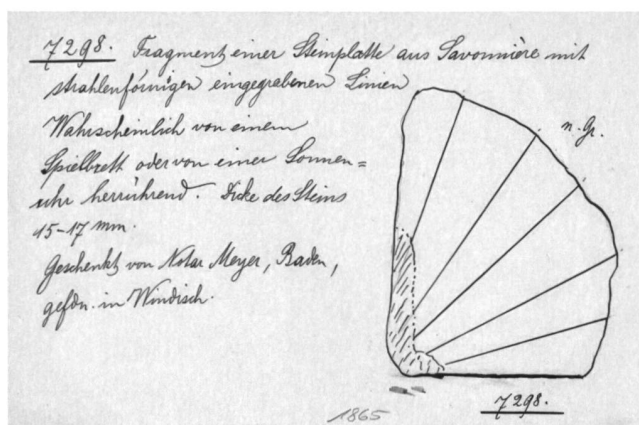 7298. Fragment einer Steinplatte aus Savonnière mit
strahlenförmigen eingegrabenen Linien
Wahrscheinlich von einem
Spielbrett oder von einer Sonnen=
uhr herrührend. Dicke des Steins
15-17 mm.
Geschenkt von Notar Meyer, Baden,
gefdn. in Windisch.
n. Gr.
7298.
1865